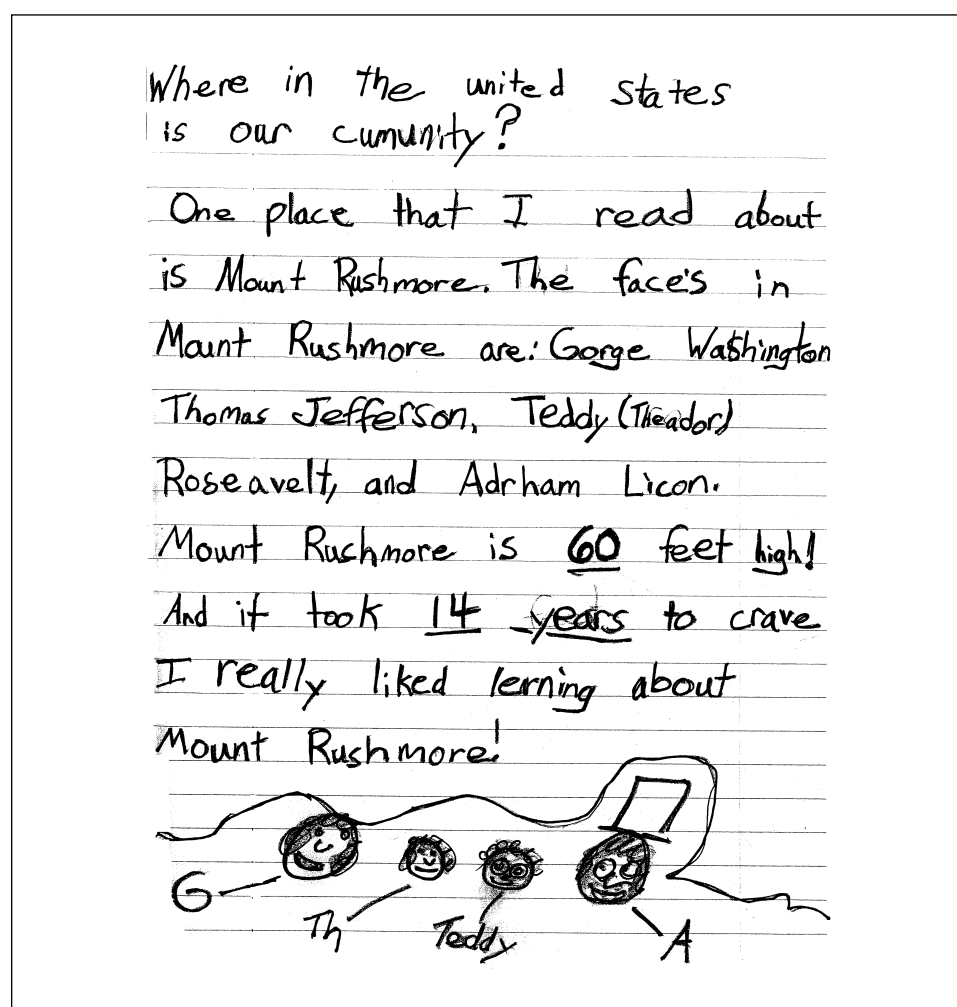 Where in the united states
is our cumunity?
One place that I read about
is Mount Rushmore. The face's in
Mount Rushmore are: Gorge Washington
Thomas Jefferson, Teddy (Theador)
Roseavelt, and Adrham Licon.
Mount Ruchmore is 60 feet high!
And it took 14 years to crave
I really liked lerning about
Mount Rushmore!
G
Th
Teddy
A